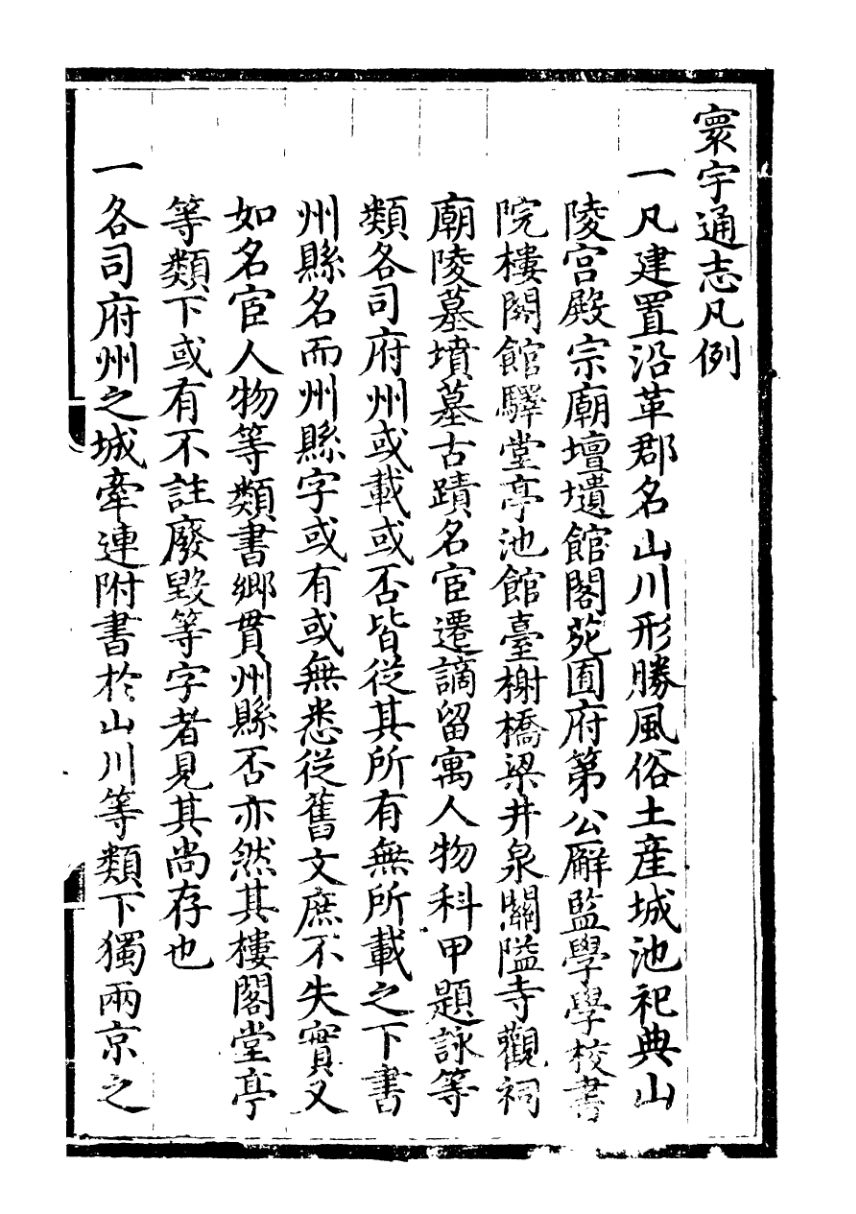 寰宇通志凡例
一凡建置沿革郡名山川形勝風俗土產城池祀典山
陵宮殿宗廟壇壝館閣苑囿府第公廨監學學校書
院樓閣館驛堂亭池館臺榭橋梁井泉關隘寺觀祠
廟陵墓墳墓古蹟名宦遷謫留寓人物科甲題詠等
類各司府州或載或否皆從其所有無所載之下書
州縣名而州縣字或有或無悉從舊文庶不失實又
如名宦人物等類書鄉貫州縣否亦然其樓閣堂亭
等類下或有不註廢毀等字者見其尚存也
一各司府州之城牽連附書於山川等類下獨兩京之